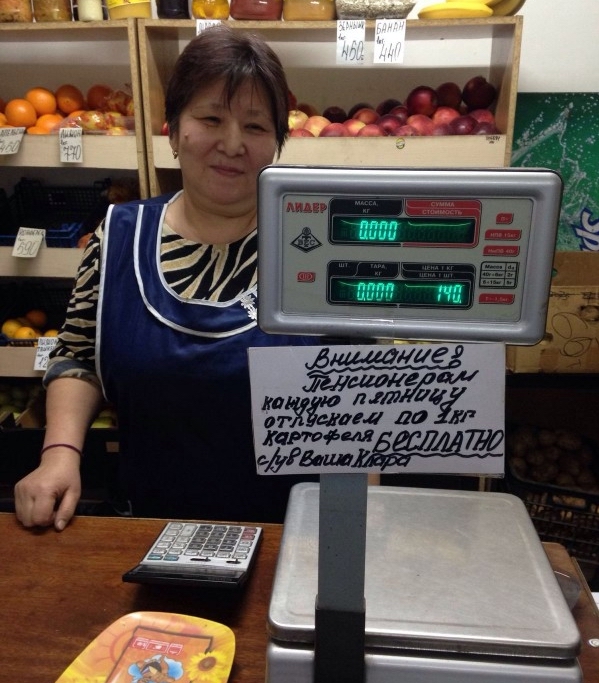 450
БАНАН
440
770
590
ЛИДЕР
МАССА,
КГ
СУММА
СТОИМОСТЬ
0.000
ШТ.
ТАРА,
КГ
ЦЕНА 1 КГ
ЦЕНА 1 ШТ
0.000
140.
Внимание!
Пенсионерам
каждую пятницу
отпускаем по 1 кг
картофеля БЕСПЛАТНО
с/ув Ваша Клара